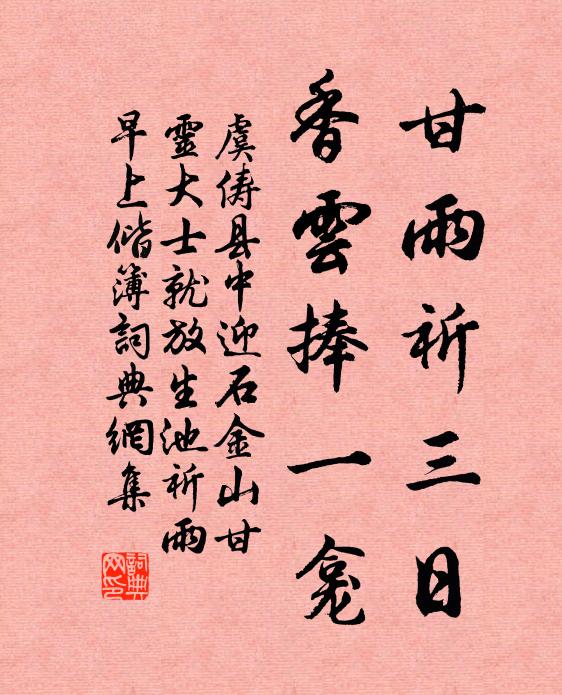 甘雨祈三日
香雲捧一龕
虞俦县中迎石金山甘
靈大士就放生池祈雨
早上偕簿詞典網集
詞典网印